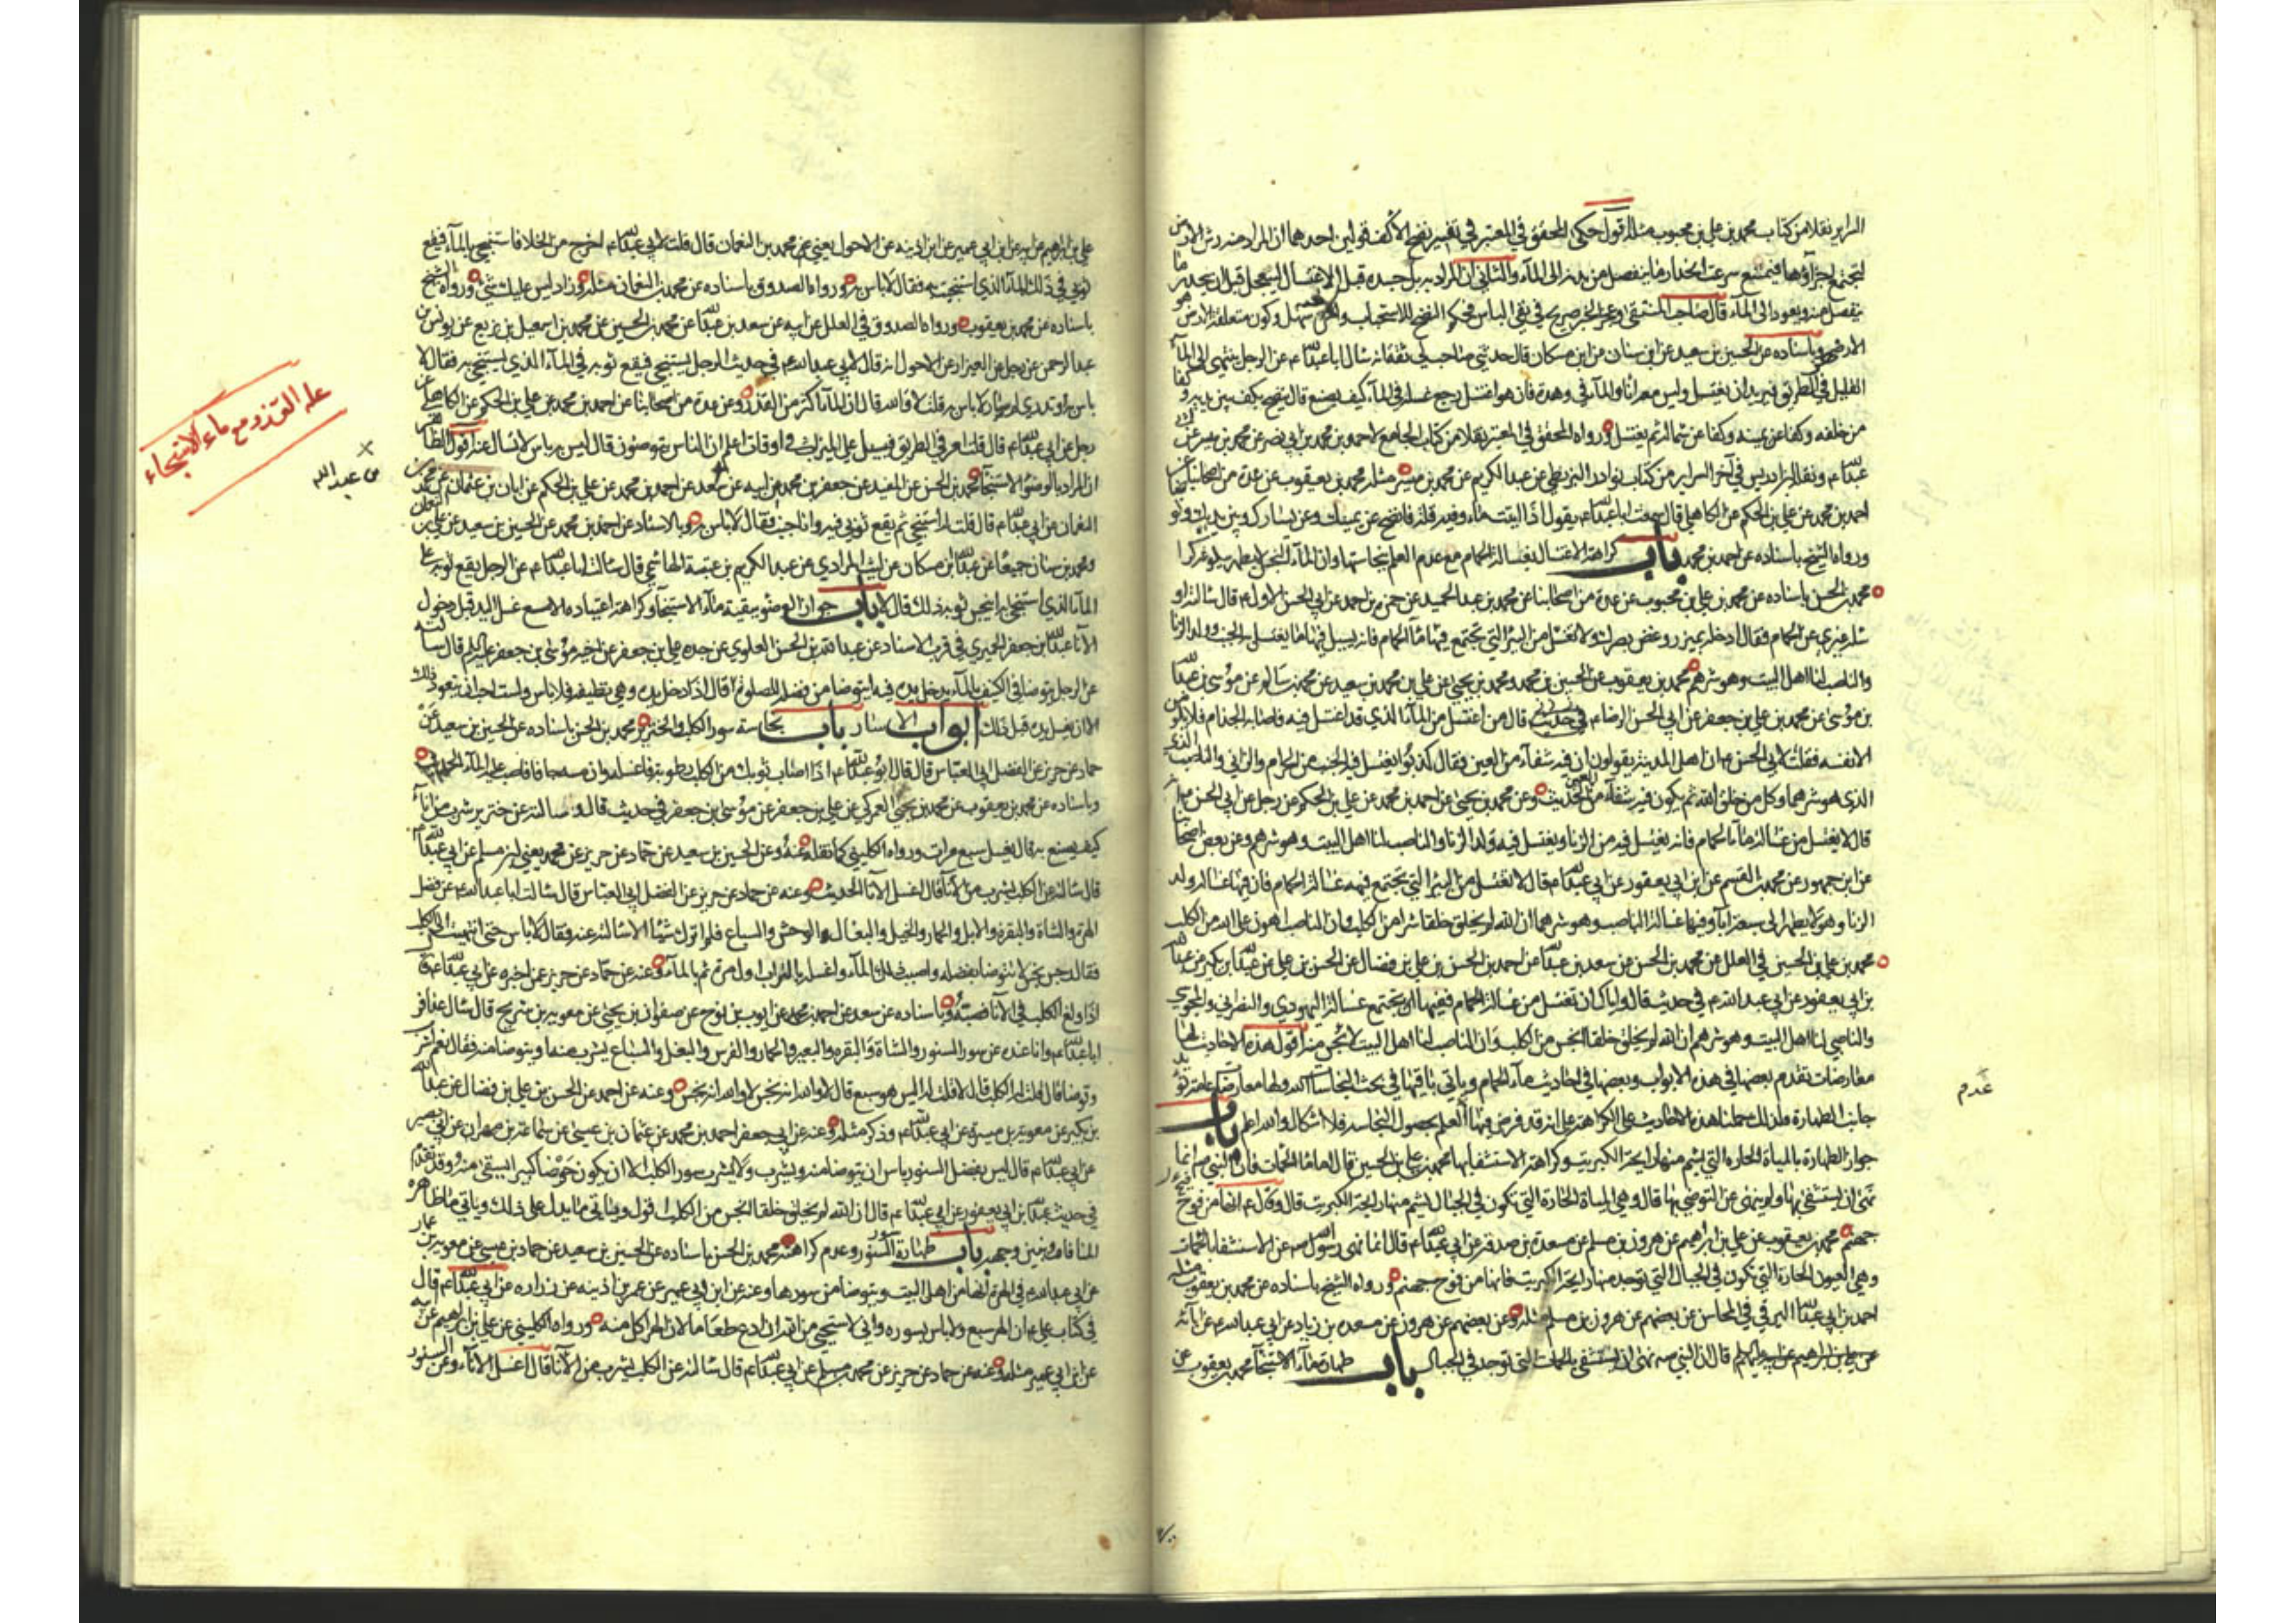 السراير نقلا من كتاب محمد بن علي بن محبوب مثله اقول حكى المحقق في المعتبر في تفسير نضح الاكف قولين احدهما ان المراد منه رش الارض
لتجتمع اجزاؤها فيمتنع سرعة انحدار ما ينفصل من بدنه الى الماء والثاني ان المراد به بل جسده قبل الاغتسال ليتعجل قبل ان ينحدر ما
ينفصل منه ويعود الى الماء قال صاحب المنتقى وعجز الخبر صريح في نفي الباس فحكم النضح للاستحباب
الارض وباسناده عن الحسين بن سعيد عن ابن سنان عن ابن مسكان قال حدثني صاحب لي ثقة انه سال ابا عبدالله ع عن الرجل ينتهي الى الماء
القليل في الطريق فيريد ان يغتسل وليس معه اناء والماء في وهدة فان هو اغتسل رجع غسله في الماء كيف يصنع قال ينضح بكف بين يديه وكفا
من خلفه وكفا عن يمينه وكفا عن شماله ثم يغتسل ورواه المحقق في المعتبر نقلا من كتاب الجامع لاحمد بن محمد بن ابي نصر عن محمد بن ميسر عن ابي
عبدالله ع ونقله ابن ادريس في آخر السراير من كتاب نوادر البزنطي عن عبد الكريم عن محمد بن ميسر مثله محمد بن يعقوب عن عدة من اصحابنا عن
احمد بن محمد عن علي بن الحكم عن الكاهلي قال سمعت ابا عبدالله ع يقول اذا اتيت ماء وفيه قلة فانضح عن يمينك وعن يسارك وبين يديك وتوضا
ورواه الشيخ باسناده عن احمد بن محمد باب كراهة الاغتسال بغسالة الحمام مع عدم العلم بنجاستها وان الماء النجس لا يطهر ببلوغه كرا
محمد بن الحسن باسناده عن محمد بن علي بن محبوب عن عدة من اصحابنا عن محمد بن عبد الحميد عن حمزة بن احمد عن ابي الحسن الاول ع قال سالته او
ساله غيري عن الحمام فقال ادخله بميزر وغض بصرك ولا تغتسل من البئر التي تجتمع فيها ماء الحمام فانه يسيل فيها ما يغتسل به الجنب وولد الزنا
والناصب لنا اهل البيت وهو شرهم محمد بن يعقوب عن الحسين بن محمد ومحمد بن يحيى عن علي بن محمد بن سعيد عن محمد بن سالم عن موسى بن عبدالله
بن موسى عن محمد بن علي بن جعفر عن ابي الحسن الرضا ع في حديث قال من اغتسل من الماء الذي قد اغتسل فيه فاصابه الجذام فلا يلومن
الا نفسه فقلت لابي الحسن ع ان اهل المدينة يقولون ان فيه شفاء من العين فقال كذبوا يغتسل فيه الجنب من الحرام والزاني والناصب الذي
الذي هو شرهما وكل من خلق الله ثم يكون فيه شفاء من العين الحديث وعن محمد بن يحيى عن احمد بن محمد عن علي بن الحكم عن رجل عن ابي الحسن ع
قال لا يغتسل من غسالة ماء الحمام فانه يغتسل فيه من الزنا ويغتسل فيه ولد الزنا والناصب لنا اهل البيت وهو شرهم وعن بعض اصحابنا
عن ابن جمهور عن محمد بن القسم عن ابن ابي يعفور عن ابي عبدالله ع قال لا تغتسل من البئر التي تجتمع فيها غسالة الحمام فان فيها غسالة ولد
الزنا وهو لا يطهر الى سبعة آباء وفيها غسالة الناصب وهو شرهما ان الله لم يخلق خلقا شرا من الكلب وان الناصب اهون على الله من الكلب
محمد بن علي بن الحسين في العلل عن محمد بن الحسن عن سعد بن عبدالله عن احمد بن الحسن بن علي بن فضال عن الحسن بن علي عن عبدالله بن بكير عن عبدالله
بن ابي يعفور عن ابي عبدالله ع في حديث قال واياك ان تغتسل من غسالة الحمام ففيها تجتمع غسالة اليهودي والنصراني والمجوسي
والناصب لنا اهل البيت وهو شرهم ان الله لم يخلق خلقا انجس من الكلب وان الناصب لنا اهل البيت لانجس منه اقول هذه الاحاديث لها
معارضات تقدم بعضها في هذه الابواب وبعضها في احاديث ماء الحمام وياتي باقيها في بحث النجاسات
جانب الطهارة فلذلك حملنا هذه الاحاديث على الكراهة على انه قد فرض فيها العلم بحصول النجاسة فلا اشكال والله اعلم باب
جواز الطهارة بالمياه الحارة التي يشم منها رايحة الكبريت وكراهة الاستشفاء بها محمد بن علي بن الحسين قال اما ماء الحمات فان النبي ص انما
نهى ان يستشفى بها ولم ينه عن التوضي بها قال وهي المياه الحارة التي تكون في الجبال يشم منها رايحة الكبريت قال وقال ع انها من فوح
جهنم محمد بن يعقوب عن علي بن ابراهيم عن هرون بن مسلم عن مسعدة بن صدقة عن ابي عبدالله ع قال انما نهى رسول الله ص عن الاستشفاء بالحمات
وهي العيون الحارة التي تكون في الجبال التي توجد منها رايحة الكبريت فانها من فوح جهنم ورواه الشيخ باسناده عن محمد بن يعقوب مثله
احمد بن ابي عبدالله البرقي في المحاسن عن بعضهم عن هرون بن مسلم مثله وعن بعضهم عن هرون عن مسعدة بن زياد عن ابي عبدالله ع عن آبائه
قال ان النبي ص نهى ان يستشفى بالحمات التي توجد في الجبال باب طهارة ماء الاستنجاء محمد بن يعقوب عن
عدم
علي بن ابراهيم عن ابيه عن ابن ابي عمير عن ابن اذينة عن الاحول يعني محمد بن النعمان قال قلت لابي عبدالله ع اخرج من الخلا فاستنجي بالماء فيقع
ثوبي في ذلك الماء الذي استنجيت به فقال لا باس به ورواه الصدوق باسناده عن محمد بن النعمان مثله وزاد ليس عليك شيء ورواه الشيخ
باسناده عن محمد بن يعقوب ورواه الصدوق في العلل عن ابيه عن سعد بن عبدالله عن محمد بن الحسين عن محمد بن اسمعيل بن بزيع عن يونس بن
عبد الرحمن عن رجل عن العيزار عن الاحول انه قال لابي عبدالله ع في حديث الرجل يستنجي فيقع ثوبه في الماء الذي يستنجي به فقال لا
باس او تدري لم صار لا باس به قلت لا والله قال ان الماء اكثر من القذر وعن عدة من اصحابنا عن احمد بن محمد عن علي بن الحكم عن الكاهلي عن
رجل عن ابي عبدالله ع قال قلت امر في الطريق فيسيل علي الميزاب في اوقات اعلم ان الناس يتوضون قال ليس به باس لا تسال عنه اقول الظاهر
ان المراد بالوضوء الاستنجاء محمد بن الحسن عن المفيد عن جعفر بن محمد عن ابيه عن سعد عن احمد بن محمد عن علي بن الحكم عن ابان بن عثمان عن محمد بن
النعمان عن ابي عبدالله ع قال قلت له استنجي ثم يقع ثوبي فيه وانا جنب فقال لا باس به وبالاسناد عن احمد بن محمد عن الحسين بن سعيد عن علي بن النعمان
ومحمد بن سنان جميعا عن عبدالله بن مسكان عن ليث المرادي عن عبد الكريم بن عتبة الهاشمي قال سالت ابا عبدالله ع عن الرجل يقع ثوبه على
الماء الذي استنجى به اينجس ثوبه ذلك قال لا باب جواز الوضوء ببقية ماء الاستنجاء وكراهة اعتياده الا مع غسل اليد قبل دخول
الاناء عبدالله بن جعفر الحميري في قرب الاسناد عن عبدالله بن الحسن العلوي عن جده علي بن جعفر عن اخيه موسى بن جعفر عليه السلام قال سالته
عن الرجل يتوضا في الكنيف بالماء يدخل يده فيه ايتوضا من فضله للصلوة قال اذا ادخل يده وهي نظيفة فلا باس ولست احب ان يتعود ذلك
الا ان يغسل يده قبل ذلك ابواب الاسئار باب نجاسة سور الكلب والخنزير محمد بن الحسن باسناده عن الحسين بن سعيد عن
حماد عن حريز عن الفضل ابي العباس قال قال ابو عبدالله ع اذا اصاب ثوبك من الكلب رطوبة فاغسله وان مسه جافا فاصبب عليه الماء الحديث
وباسناده عن محمد بن يعقوب عن محمد بن يحيى عن العمركي عن علي بن جعفر عن موسى بن جعفر في حديث قال وسالته عن خنزير شرب من اناء
كيف يصنع به قال يغسل سبع مرات ورواه الكليني كما نقله عنه وعن الحسين بن سعيد عن حماد عن حريز عن محمد يعني ابن مسلم عن ابي عبدالله ع
قال سالته عن الكلب يشرب من الاناء قال اغسل الاناء الحديث وعنه عن حماد عن حريز عن الفضل ابي العباس قال سالت ابا عبدالله ع عن فضل
الهرة والشاة والبقرة والابل والحمار والخيل والبغال والوحش والسباع فلم اترك شيئا الا سالته عنه فقال لا باس حتى انتهيت الى الكلب
فقال رجس نجس لا تتوضا بفضله واصبب ذلك الماء واغسله بالتراب اول مرة ثم بالماء وعنه عن حماد عن حريز عمن اخبره عن ابي عبدالله ع قال
اذا ولغ الكلب في الاناء فصبه وباسناده عن سعد عن احمد بن محمد عن ايوب بن نوح عن صفوان بن يحيى عن معوية بن شريح قال سال عذافر
ابا عبدالله ع وانا عنده عن سور السنور والشاة والبقرة والبعير والحمار والفرس والبغل والسباع يشرب منه او يتوضا منه فقال نعم اشرب
وتوضا قال قلت له الكلب قال لا قلت اليس هو سبع قال لا والله انه نجس لا والله انه نجس وعنه عن احمد عن الحسن بن علي بن فضال عن عبدالله
بن بكير عن معوية بن ميسرة عن ابي عبدالله ع وذكر مثله وعنه عن ابي جعفر احمد بن محمد عن عثمان بن عيسى عن سماعة بن مهران عن ابي بصير
عن ابي عبدالله ع قال ليس بفضل السنور باس ان يتوضا منه ويشرب ولا يشرب سور الكلب الا ان يكون حوضا كبيرا يستقى منه وقد تقدم
في حديث عبدالله بن ابي يعفور عن ابي عبدالله ع قال ان الله لم يخلق خلقا انجس من الكلب اقول وياتي ما يدل على ذلك وياتي ما ظاهره
المنافاة ونبين وجهه باب طهارة سور السنور وعدم كراهته محمد بن الحسن باسناده عن الحسين بن سعيد عن حماد بن عيسى عن معوية بن عمار
عن ابي عبدالله ع في الهرة انها من اهل البيت ويتوضا من سورها وعنه عن ابن ابي عمير عن عمر بن اذينه عن زراره عن ابي عبدالله ع قال
في كتاب علي ع ان الهر سبع ولا باس بسوره واني لاستحيي من الله ان ادع طعاما لان الهر اكل منه ورواه الكليني عن علي بن ابراهيم عن ابيه
عن ابن ابي عمير مثله وعنه عن حماد عن حريز عن محمد بن مسلم عن ابي عبدالله ع قال سالته عن الكلب يشرب من الاناء قال اغسل الاناء وعن السنور
من عبد الله